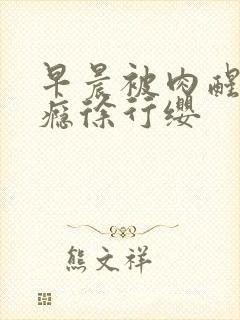 早晨被肉醒
瘾徐行缨
熊文祥